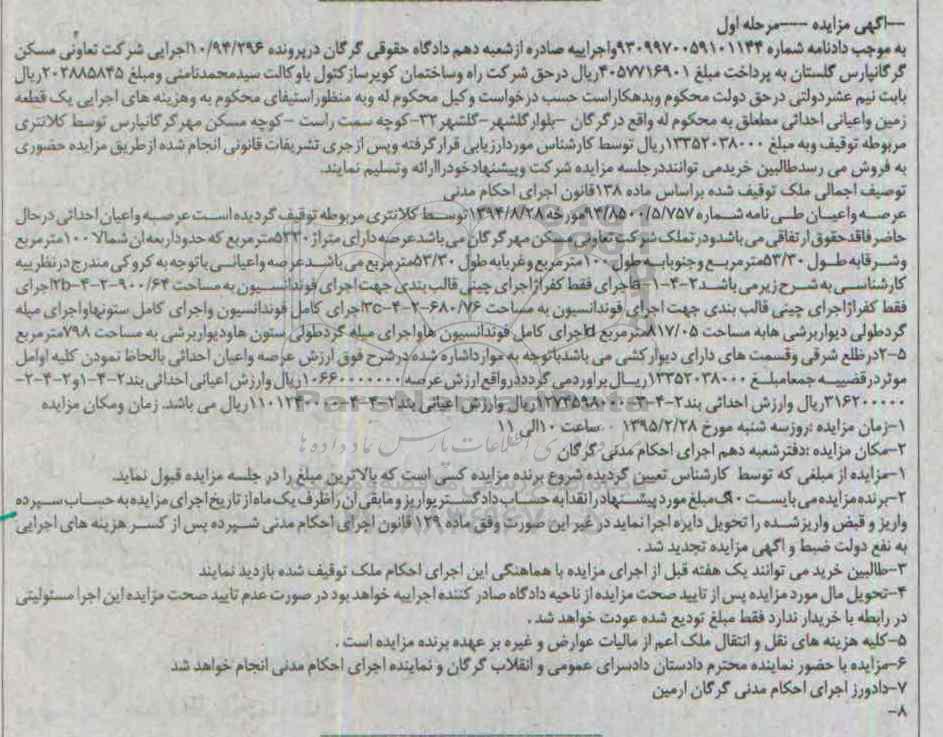 —آگهی مزایده ——مرحله اول
به موجب دادنامه شماره ۹۳۰۹۹۷۰۰۵۹۱۰۱۱۴۴واجراییه صادره ازشعبه دهم دادگاه حقوقی گرگان درپرونده ۱۰/۹۴/۲۹۶اجرایی شرکت تعاونی مسکن
گرگانپارس گلستان به پرداخت مبلغ ۴۰۵۷۷۱۶۹۰۱ریال درحق شرکت راه وساختمان کویرسازکتول باوکالت سیدمحمدثامنی ومبلغ ۲۰۲۸۸۵۸۴۵ریال
بابت نیم عشردولتی درحق دولت محکوم وبدهکاراست حسب درخواست وکیل محکوم له وبه منظوراستیفای محکوم به وهزینه های اجرایی یک قطعه
زمین واعیانی احداثی مطعلق به محکوم له واقع درگرگان –بلوارگلشهر–گلشهر۳۲–کوچه سمت راست –کوچه مسکن مهرگرگانپارس توسط کلانتری
مربوطه توقیف وبه مبلغ ۱۳۳۵۲۰۳۸۰۰۰ریال توسط کارشناس موردارزیابی قرارگرفته وپس ازجری تشریفات قانونی انجام شده ازطریق مزایده حضوری
به فروش می رسدطالبین خریدمی تواننددرجلسه مزایده شرکت وپیشنهادخودراارائه وتسلیم نمایند.
توصیف اجمالی ملک توقیف شده براساس ماده ۱۳۸قانون اجرای احکام مدنی
عرصه واعیان طی نامه شماره ۹۴/۸۵۰۰/۵/۷۵۷مورخه ۱۳۹۴/۸/۲۸توسط کلانتری مربوطه توقیف گردیده است عرصه واعیان احداثی درحال
حاضرفاقدحقوق ارتفاقی می باشدودرتملک شرکت تعاونی مسکن مهرگرگان می باشدعرصه دارای متراژ۵۳۳۰مترمربع که حدوداربعه ان شمالا ۱۰۰مترمربع
وشرقابه طول ۵۳/۳۰مترمربع وجنوبابه طول ۱۰۰مترمربع وغربابه طول ۵۳/۳۰مترمربع می باشدعرصه واعیانی باتوجه به کروکی مندرج درنظریه
کارشناسی به شرح زیرمی باشد۲–۴–۱–aاجرای فقط کفراژاجرای چینی قالب بندی جهت اجرای فوندانسیون به مساحت ۹۰۰/۶۴–۲–۴–۲bاجرای
فقط کفراژاجرای چینی قالب بندی جهت اجرای فوندانسیون به مساحت ۶۸۰/۷۶–۲–۴–۳cاجرای کامل فوندانسیون واجرای کامل ستونهاواجرای میله
گردطولی دیواربرشی هابه مساحت ۸۱۷/۰۵مترمربع dاجرای کامل فوندانسیون هاواجرای میله گردطولی ستون هاودیواربرشی به مساحت ۷۹۸مترمربع
۲–۵درظلع شرقی وقسمت های دارای دیوارکشی می باشدباتوجه به مواراشاره شده درشرح فوق ارزش عرصه واعیان احداثی بالحاظ نمودن کلیه اوامل
موثردرقضییه جمعامبلغ ۱۳۳۵۲۰۳۸۰۰۰ ریال براوردمی گردددرواقع ارزش عرصه ۱۰۶۶۰۰۰۰۰۰۰ریال وارزش اعیانی احداثی بند۲–۴–۱و۲–۴–۲–
۳۱۶۲۰۰۰۰۰ریال وارزش احداثی بند۲–۴–۳–۱۲۷۴۵۹۸۰۰۰ریال وارزش اعیانی بند۲–۴–۴–۱۱۰۱۲۴۰۰۰۰ریال می باشد. زمان ومکان مزایده
۱–زمان مزایده :روزسه شنبه مورخ ۱۳۹۵/۲/۲۸ ساعت ۱۰الی ۱۱
۲–مکان مزایده :دفترشعبه دهم اجرای احکام مدنی گرگان
۱–مزایده از مبلغی که توسط کارشناس تعیین گردیده شروع برنده مزایده کسی است که بالاترین مبلغ را در جلسه مزایده قبول نماید.
۲–برنده مزایده می بایست ۱۰٪مبلغ مورد پیشنهاد را نقدا به حساب دادگستر یواریز و مابقی آن را ظرف یک ماه از تاریخ اجرای مزایده به حساب سپرده
واریز و قبض واریز شده را تحویل دایره اجرا نماید در غیر این صورت وفق ماده ۱۲۹ قانون اجرای احکام مدنی سپرده پس از کسر هزینه های اجرایی
به نفع دولت ضبط و اگهی مزایده تجدید شد .
۳–طالبین خرید می توانند یک هفته قبل از اجرای مزایده با هماهنگی این اجرای احکام ملک توقیف شده بازدید نمایند
۴–تحویل مال مورد مزایده پس از تایید صحت مزایده از ناحیه دادگاه صادر کننده اجراییه خواهد بود در صورت عدم تایید صحت مزایده این اجرا مسئولیتی
در رابطه با خریدار ندارد فقط مبلغ تودیع شده عودت خواهد شد .
۵–کلیه هزینه های نقل و انتقال ملک اعم از مالیات عوارض و غیره بر عهده برنده مزایده است .
۶–مزایده با حضور نماینده محترم دادستان دادسرای عمومی و انقلاب گرگان و نماینده اجرای احکام مدنی انجام خواهد شد
۷–دادورز اجرای احکام مدنی گرگان ارمین
۸–
ParsNamadData